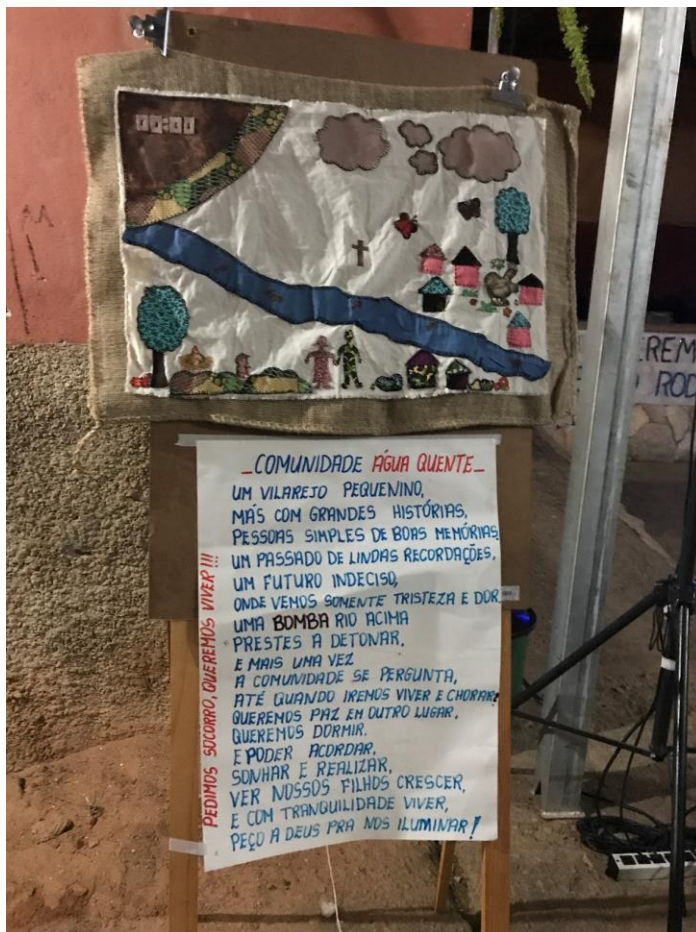 _COMUNIDADE ÁGUA QUENTE_
UM VILAREJO PEQUENINO,
MÁS COM GRANDES HISTÓRIAS,
PESSOAS SIMPLES DE BOAS MEMÓRIAS
UM PASSADO DE LINDAS RECORDAÇÕES,
UM FUTURO INDECISO,
ONDE VEMOS SOMENTE TRISTEZA E DOR
UMA BOMBA RIO ACIMA
PRESTES A DETONAR,
E MAIS UMA VEZ
A COMUNIDADE SE PERGUNTA,
ATÉ QUANDO IREMOS VIVER E CHORAR!
QUEREMOS PAZ EM OUTRO LUGAR,
QUEREMOS DORMIR.
E PODER ACORDAR,
SONHAR E REALIZAR,
VER NOSSOS FILHOS CRESCER,
E COM TRANQUILIDADE VIVER,
PEÇO A DEUS PRA NOS ILUMINAR!
PEDIMOS SOCORRO, QUEREMOS VIVER!!!